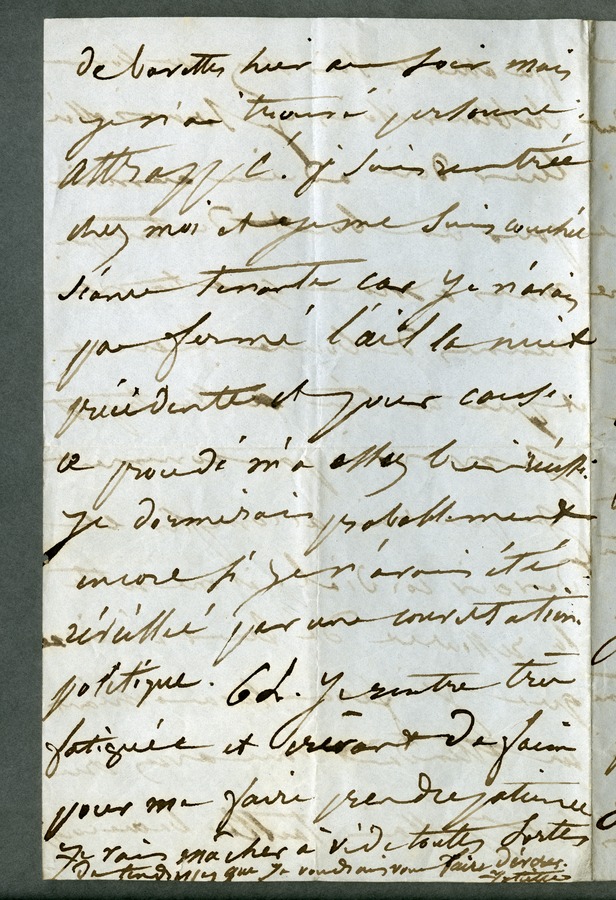 de barettes hier au soir mais
je n'ai trouvé personne.
Attrappé ! je suis rentrée
chez moi et je me suis couchée
séance tenante car je n'avais
pas fermé l'œil la nuit
précédente et pour cause.
ce procédé m'a assez bien réussi.
Je dormirais probablement
encore si je n'avais été
réveillée par une conversation
politique. 6h. Je rentre très
fatiguée et crevant de faim
pour me faire prendre patience
Je vais mâcher à vide toutes sortes
de tendresses que je voudrais vous faire dévorer.
Juliette